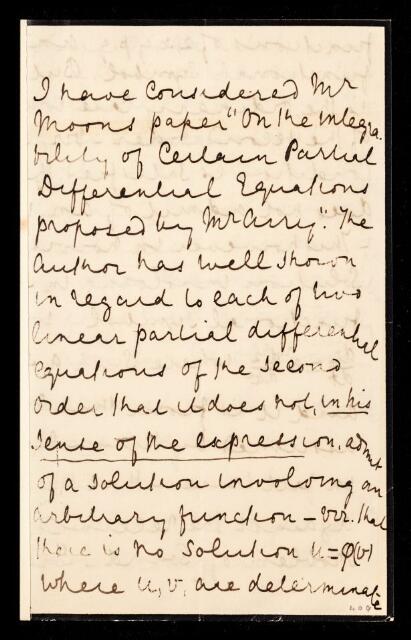 I have considered Mr
Moons paper "On the integra-
bility of Certain Partial
Differential Equations
proposed by Mr Airy". The
author has well shown
in regard to each of two
linear partial differential
equations of the second
order that it does not, in his
sense of the expression, admit
of a solution involving an
arbitrary function – viz. that
there is no solution u=φ(v)
where u, v, are determinate